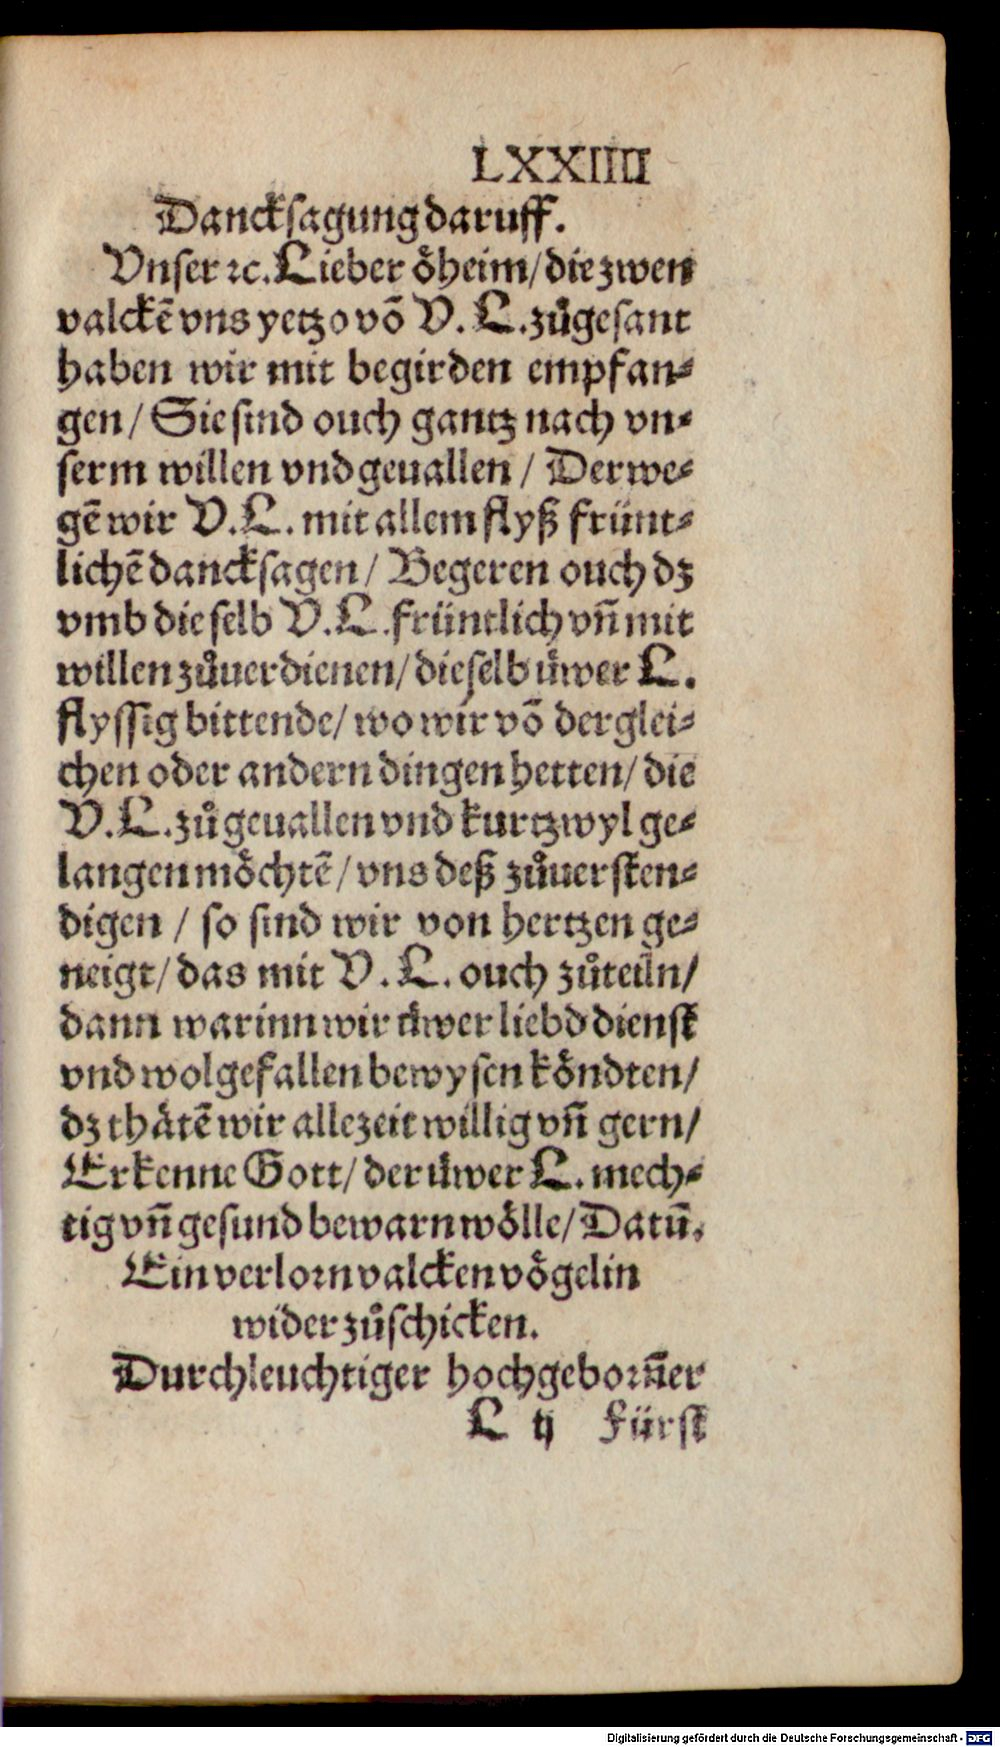 LXXIIII
Dancksagung daruff.
Vnser ꝛc. Lieber oͤheim/ die zwen
valckē vns yetzo vō V. L. zuͦgesant
haben wir mit begirden empfan⸗
gen/ Sie sind ouch gantz nach vn⸗
serm willen vnd geuallen / Derwe⸗
gē wir V. L. mit allem flyß frünt⸗
lichē dancksagen/ Begeren ouch dz
vmb die selb V. L. früntlich vñ mit
willen zuͦuerdienen/ dieselb uͤwer L.
flyssig bittende/ wo wir vō derglei⸗
chen oder andern dingen hetten/ die
V. L. zuͦ geuallen vnd kurtzwyl ge⸗
langen moͤchtē/ vns deß zuͦuersten⸗
digen / so sind wir von hertzen ge⸗
neigt/ das mit V. L. ouch zuͦteiln/
dann warinn wir uͤwer liebd dienst
vnd wolgefallen bewysen koͤndten/
dz thaͤtē wir allezeit willig vñ gern/
Erkenne Gott/ der uͤwer L. mech⸗
tig vñ gesund bewarn woͤlle/ Datū.
Ein verlorn valcken voͤgelin
wider zuͦschicken.
Durchleuchtiger hochgeborñer
L ij Fürst
Digitalisierung gefördert durch die Deutsche Forschungsgemeinschaft - DFG